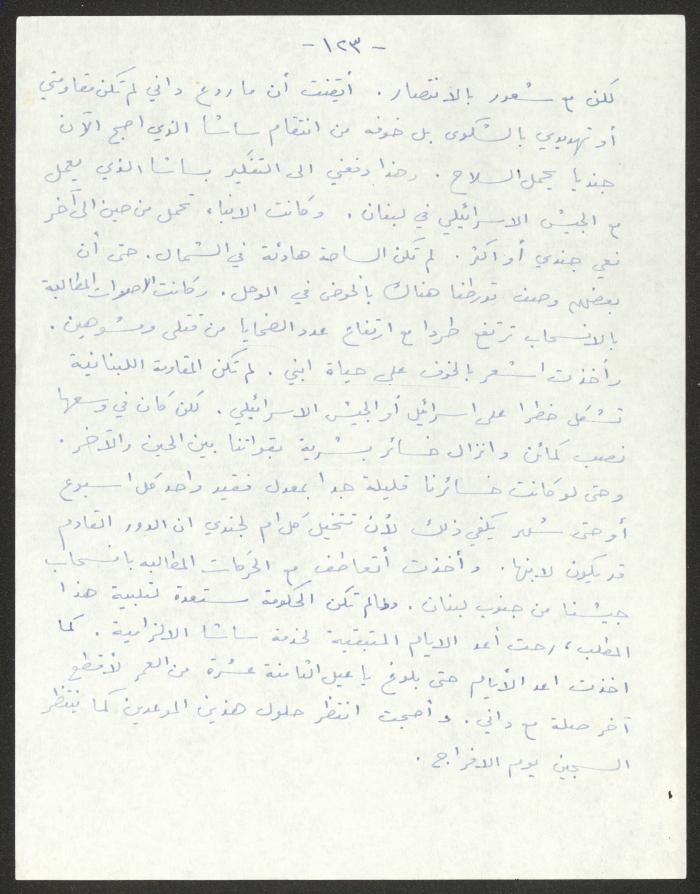 - ١٢٣ -
لكن مع شعور بالانتصار. أيقنت أن ما روع داني لم تكن مقاومتي
أو تهديدي بالشكوى بل خوفه من انتقام ساشا الذي اصبح الآن
جنديا يحمل السلاح. وهذا دفعني الى التفكير بساشا الذي يعمل
مع الجيش الاسرائيلي في لبنان. وكانت الانباء تحمل من حين الى آخر
نعي جندي أو اكثر. لم تكن الساحة هادئة في الشمال. حتى أن
بعضهم وصف تورطنا هناك بالخوض في الوحل. وكانت الاصوات المطالبة
بالانسحاب ترتفع طردا مع ارتفاع عدد الضحايا من قتلى ومشوهين.
وأخذت اشعر بالخوف على حياة ابني. لم تكن المقاومة اللبنانية
تشكل خطرا على اسرائيل أو الجيش الاسرائيلي. لكن كان في وسعها
نصب كمائن وانزال خسائر بشرية بقواتنا بين الحين والآخر.
وحتى لو كانت خسائرنا قليلة جدا بمعدل فقيد واحد كل اسبوع
أو حتى شهر يكفي ذلك لأن تتخيل كل ام لجندي ان الدور القادم
قد يكون لابنها. وأخذت أتعاطف مع الحركات المطالبه بانسحاب
جيشنا من جنوب لبنان. ولما لم تكن الحكومة مستعدة لتلبية هذا
المطلب، رحت أعد الايام المتبقية لخدمة ساشا الالزامية. كما
اخذت اعد الأيام حتى بلوغ ياعيل الثامنة عشرة من العمر لأقطع
آخر صلة مع داني. وأصبحت انتظر حلول هذين الموعدين كما ينتظر
السجين يوم الافراج.